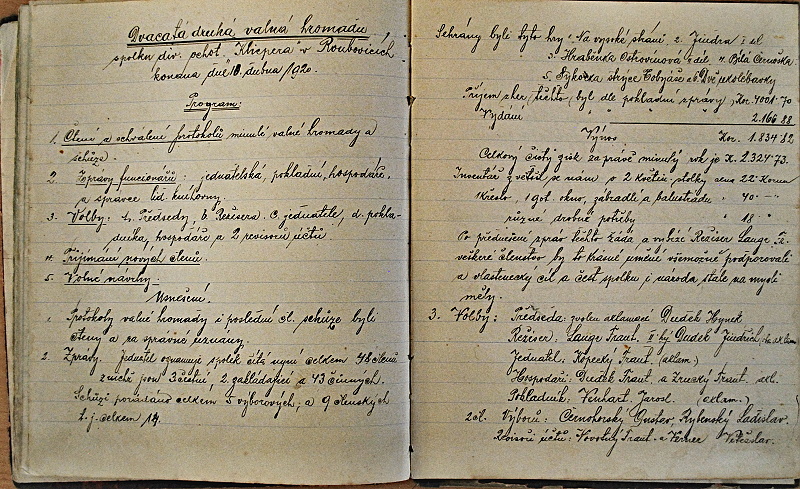 Dvacatá druhá valná hromada
spolku div. ochot. "Klicpera" v Roubovicích
konána dne 18. dubna 1920.
Program:
1. Čtení a schválení protokolů minulé valné hromady a
schůze.
2. Zprávy funcionářů: jednatelská, pokladní, hospodáře,
a správce lid. knihovny.
3. Volby: a. Předsedy, b. Režisera. c. jednatele, d. pokla-
dníka, hospodáře a 2 revisorů účtů.
4. Přijímání nových členů.
5. Volné návrhy.
Usnešení.
1. Protokoly valné hromady i poslední čl. schůze byli
čteny a za správné uznány.
2. Zprávy. Jednatel oznamuje spolek čítá nyní celkem 48 členů
z nichž jsou 3 čestní, 2 zakládající a 43 činných.
Schůzí pořádáno celkem 5 výborových, a 9 členských
t. j. celkem 14.
Sehrány byli tyto hry: Na vysoké stráni, 2. Jindra I. díl
3. Hraběnka Ostrovínová II díl, 4. Bílá Černoška
5. strýce Tobyáše a 6. Dvě kolébavky
Příjem z her těchto byl dle pokladní správy, Kor. 4001·70
Vydání " " " 2.166 88
Výnos Kor. 1.834 82
Celkový čistý zisk za právě minulý rok je K. 2.324·73.
Inventář zvětšil se nám o 2 květin. stolky cena 22 Korun
1 křeslo, 1 got. okno, zábradlí a balustrádu " 40 ·-·-
různé drobné potřeby " 18 "
Po přednešení zpráv těchto žádá a vybízí Režiser Lange Fr.
veškeré členstvo by to krásné umění všemožně podporovali
a vlastenecký cíl a čest spolku i národa stále na mysli
měly.
3. Volby: Předseda: zvolen aklamací Dudek Hynek
Režiser: Lange Frant. II. hý Dudek Jindřich,
Jednatel: Kopecký Frant. (aklam.)
Hospodáři: Dudek Frant. a Frant. akl.
Pokladník: Venhart. Jarosl. (aklam.)
2 čl. Výborů: Černohorský Gustav, Rybenský Ladislav.
Revisoři účtů: Novotný Frant. a Verner Věfěslav.